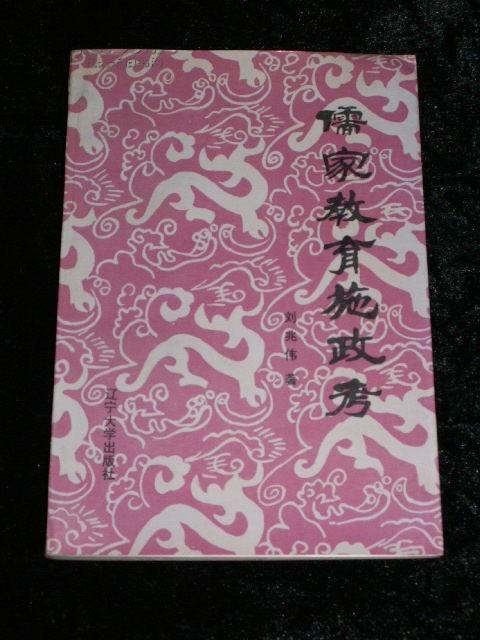 儒家教育施政考
刘兆伟 著
辽宁大学出版社